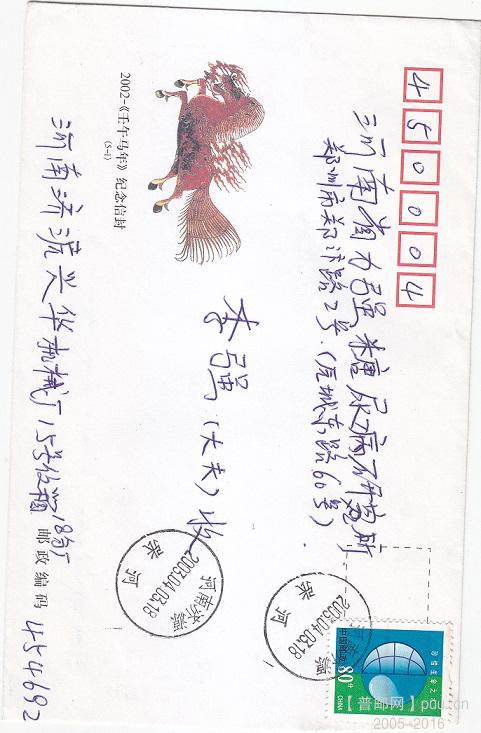 450004
河南省力强糖尿病研究所
郑州市郑汴路2号（东城东路60号）
李强（大夫）收
2002-《壬午马年》纪念信封
(5-1)
河南济源兴华机械厂15号信箱18分厂
邮政编码 454692
河南济源
2003.04.03.18
河
河南济源
2003.04.03.18
河
中国邮政
80分
CHINA
珍惜生命之水
【普邮网】pou.cn
2005-2016